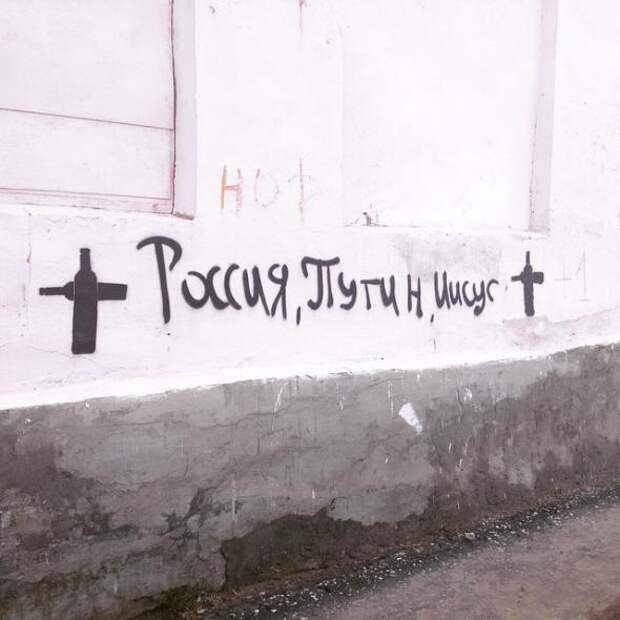 нот
Россия, Путин, Иисус